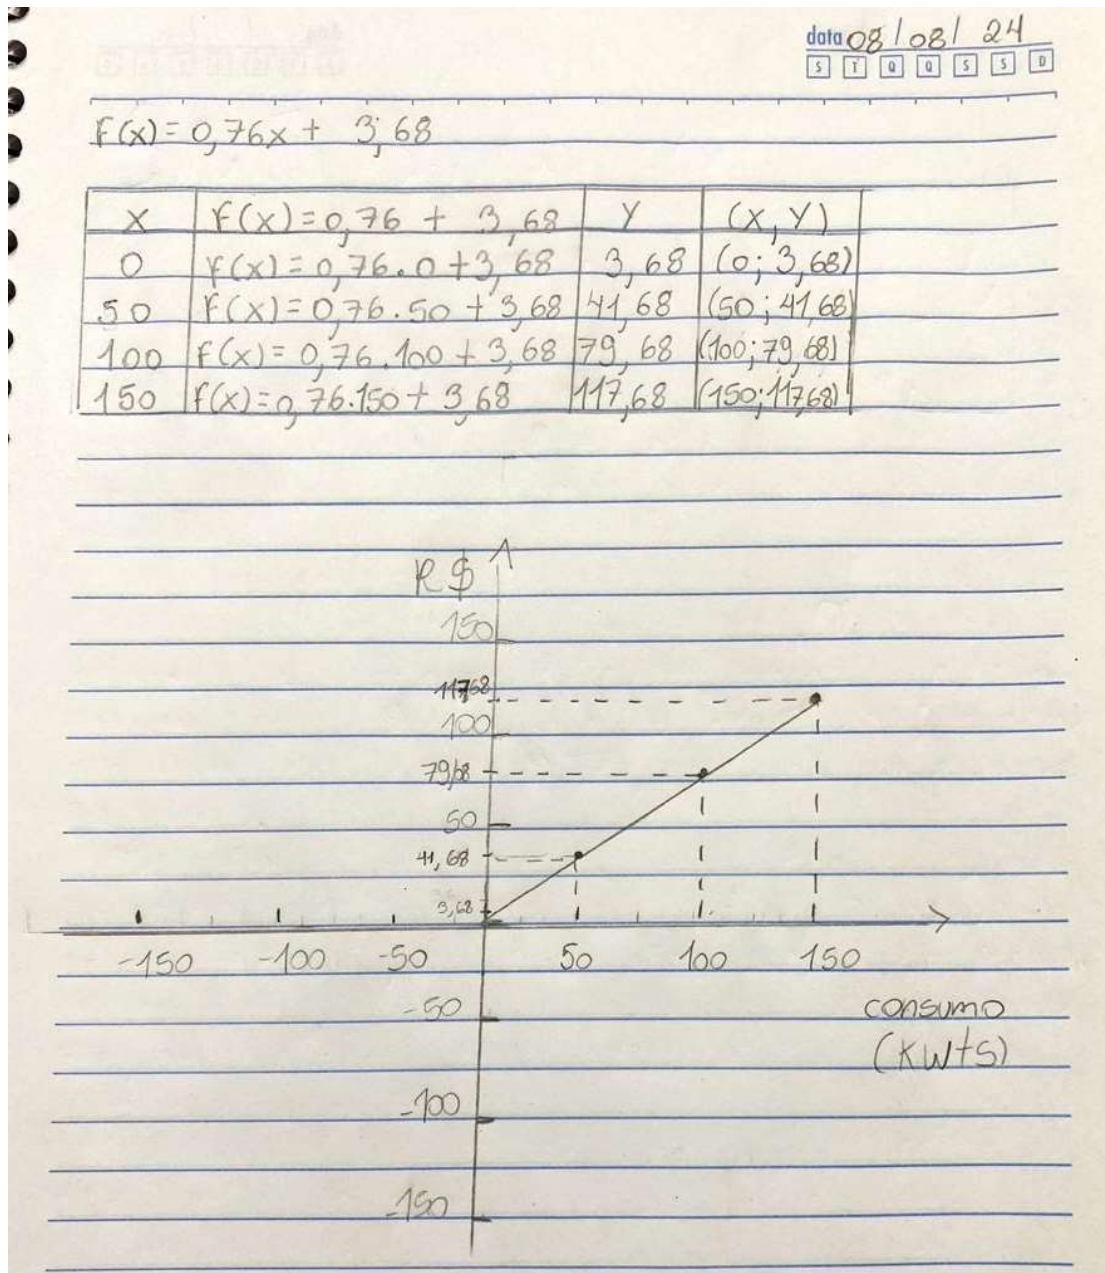 data 08/08/24
S T Q Q S S D
F(x) = 0,76x + 3,68
X F(x) = 0,76 + 3,68 Y (X, Y)
0 F(x) = 0,76.0 + 3,68 3,68 (0; 3,68)
50 F(x) = 0,76.50 + 3,68 41,68 (50; 41,68)
100 F(x) = 0,76.100 + 3,68 79,68 (100; 79,68)
150 F(x) = 0,76.150 + 3,68 117,68 (150; 117,68)
R$
150
117,68
100
79,68
50
41,68
3,68
-150 -100 -50 50 100 150
-50
consumo
(KWtS)
-100
-150